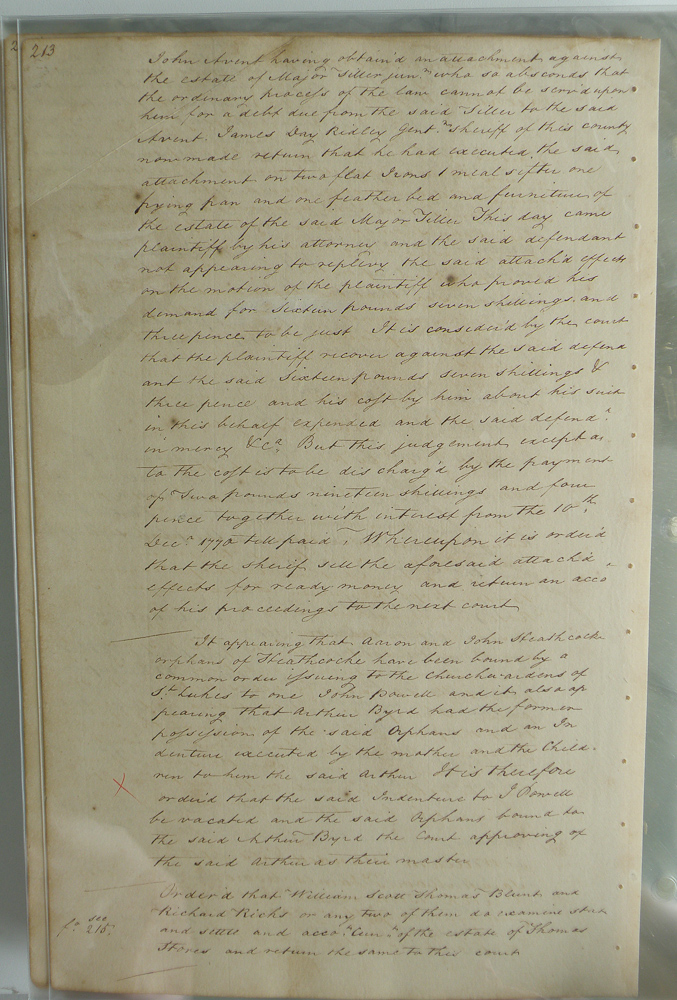 213
John Avent having obtain'd an attachment against
the estate of Major Tiller jun.r who so absconds that
the ordinary process of the law cannot be serv'd upon
him for a debt due from the said Tiller to the said
Avent. James Day Ridley Gent.n sheriff of this county
now made return that he had executed, the said
attachment on two flat Irons 1 meal sifter one
frying pan and one feather bed and furniture of
the estate of the said Major Tiller This day came
plaintiff by his attorney and the said defendant
not appearing to replevy the said attach'd effects
on the motion of the plaintiff who proved his
demand for Sixteen pounds seven shillings and
three pence to be just It is consider'd by the court
that the plaintiff recover against the said defend
ant the said Sixteen pounds seven shillings &
three pence and his cost by him about his suit
in this behalf expended and the said defend.t
in mercy &c.a But this judgement except as
to the cost is to be discharg'd by the payment
of Two pounds nineteen shillings and four
pence together with interest from the 10.th
Dec.r 1770 till paid, Whereupon it is order'd
that the sherif sell the aforesaid attach'd
effects for ready money and return an acco
of his proceedings to the next court
It appearing that Aaron and John Heathcocke
orphans of Heathcocke have been bound by a
common order issuing to the Churchwardens of
S.t Lukes to one John Powell and it also ap
pearing that Arthur Byrd had the former
possession of the said Orphans and an In
denture executed by the mother and the Child-
ren to him the said Arthur It is therefore
order'd that the said Indenture to J Powell
be vacated and the said Orphans bound to
the said Arthur Byrd the Court approving of
the said Arthur as their master
Order'd that William Scott Thomas Blunt and
Richard Ricks or any two of them do examine state
and settle and acco.t Curr.t of the estate of Thomas
Stores and return the same to this court
see
fo. 215.